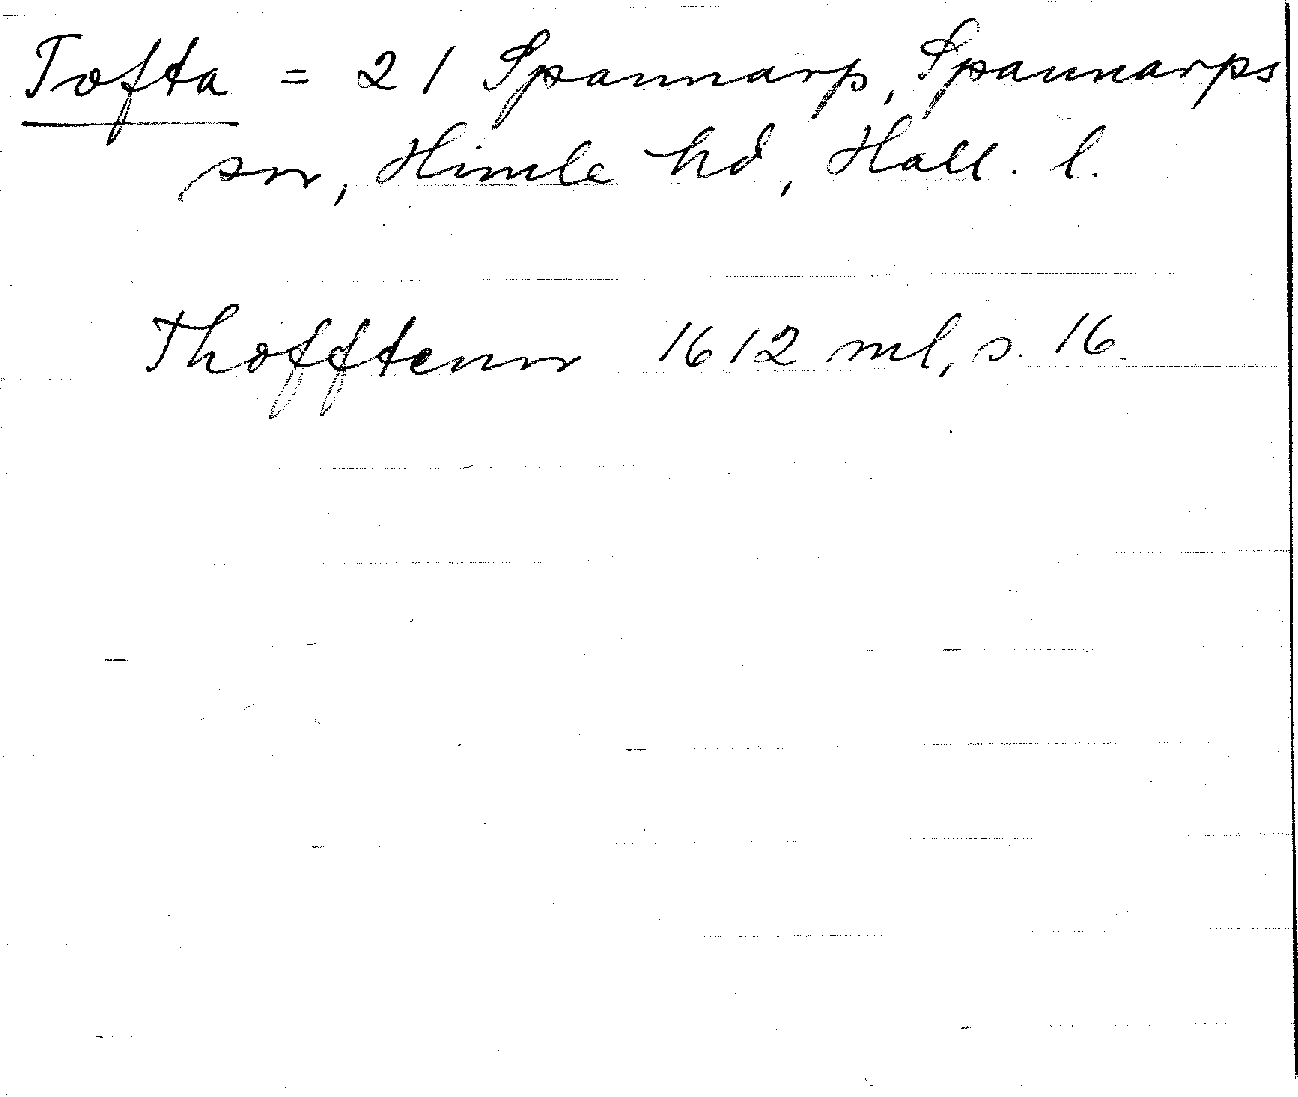 Tofta = 21 Spannarp, Spannarps
sn, Himle hd, Hall. l.
Thofftenn 1612 ml, s. 16.